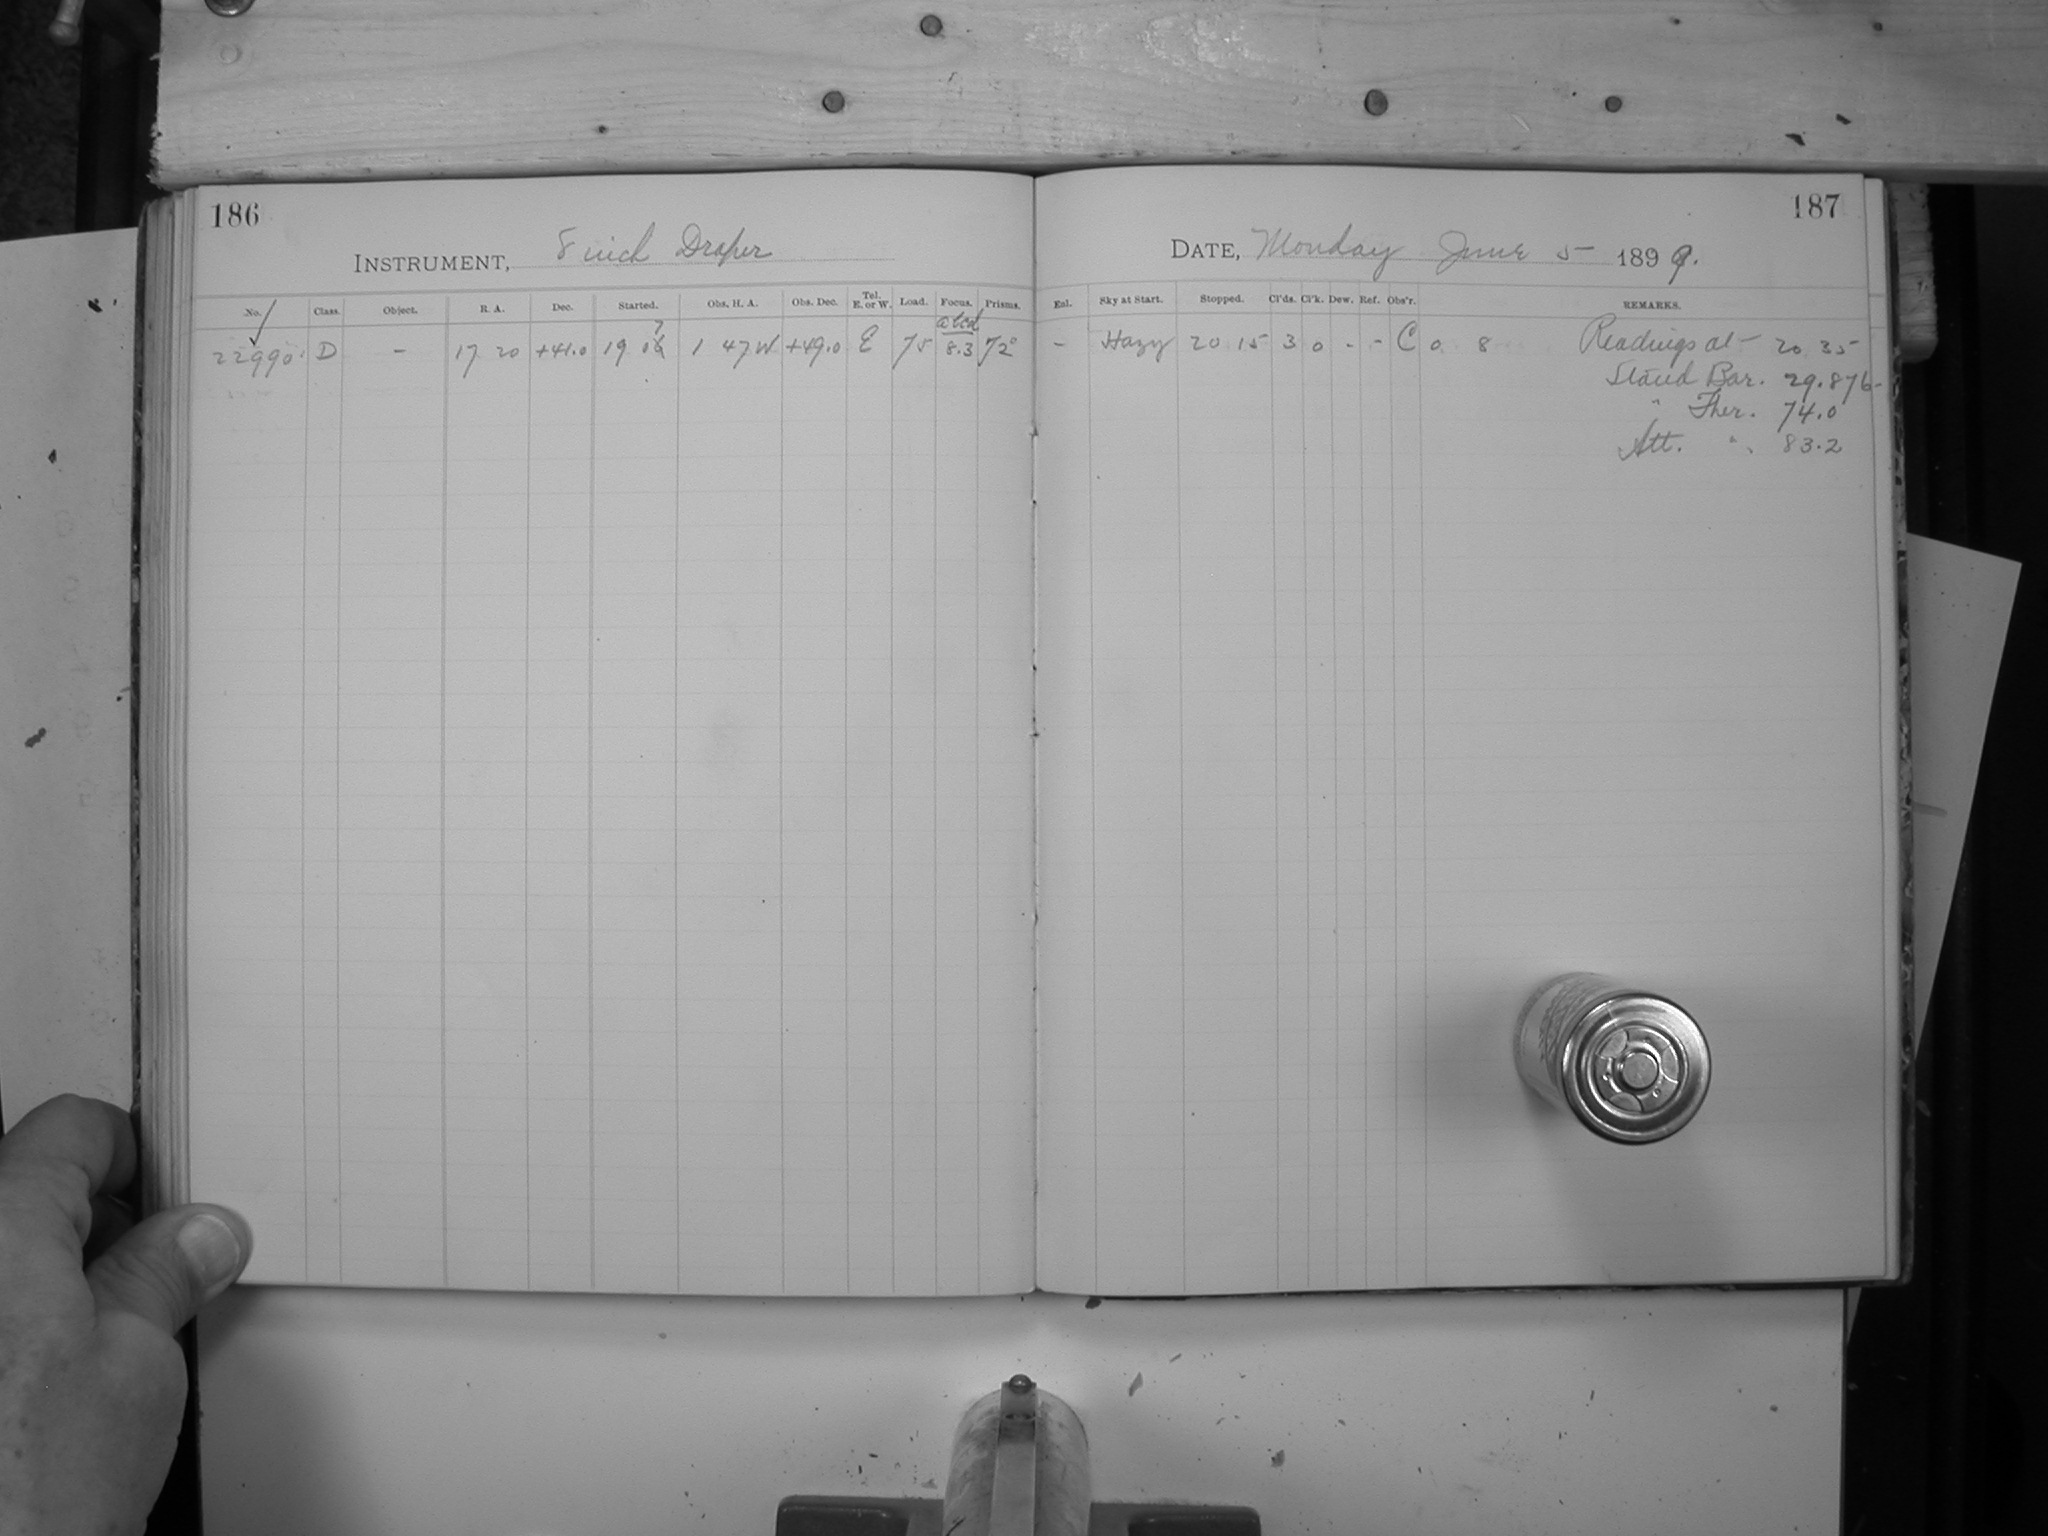 186
INSTRUMENT, 8 inch Draper
No. Class. Object. R. A. Dec. Started. Obs. H. A. Obs. Dec. Tel. E. or W. Load. Focus. Prisms.
22990 D - 17 20 +41.0 19 07 1 47 W +49.0 E 75 abcd 8.3 72°
187
DATE, Monday June 5 1899.
Enl. Sky at Start. Stopped. Cl'ds. Cl'k. Dew. Ref. Obs'r. REMARKS.
- Hazy 20 15 3 0 - - C 0 8 Readings at 20 35
Stand Bar. 29.876
" Ther. 74.0
Att. " 83.2